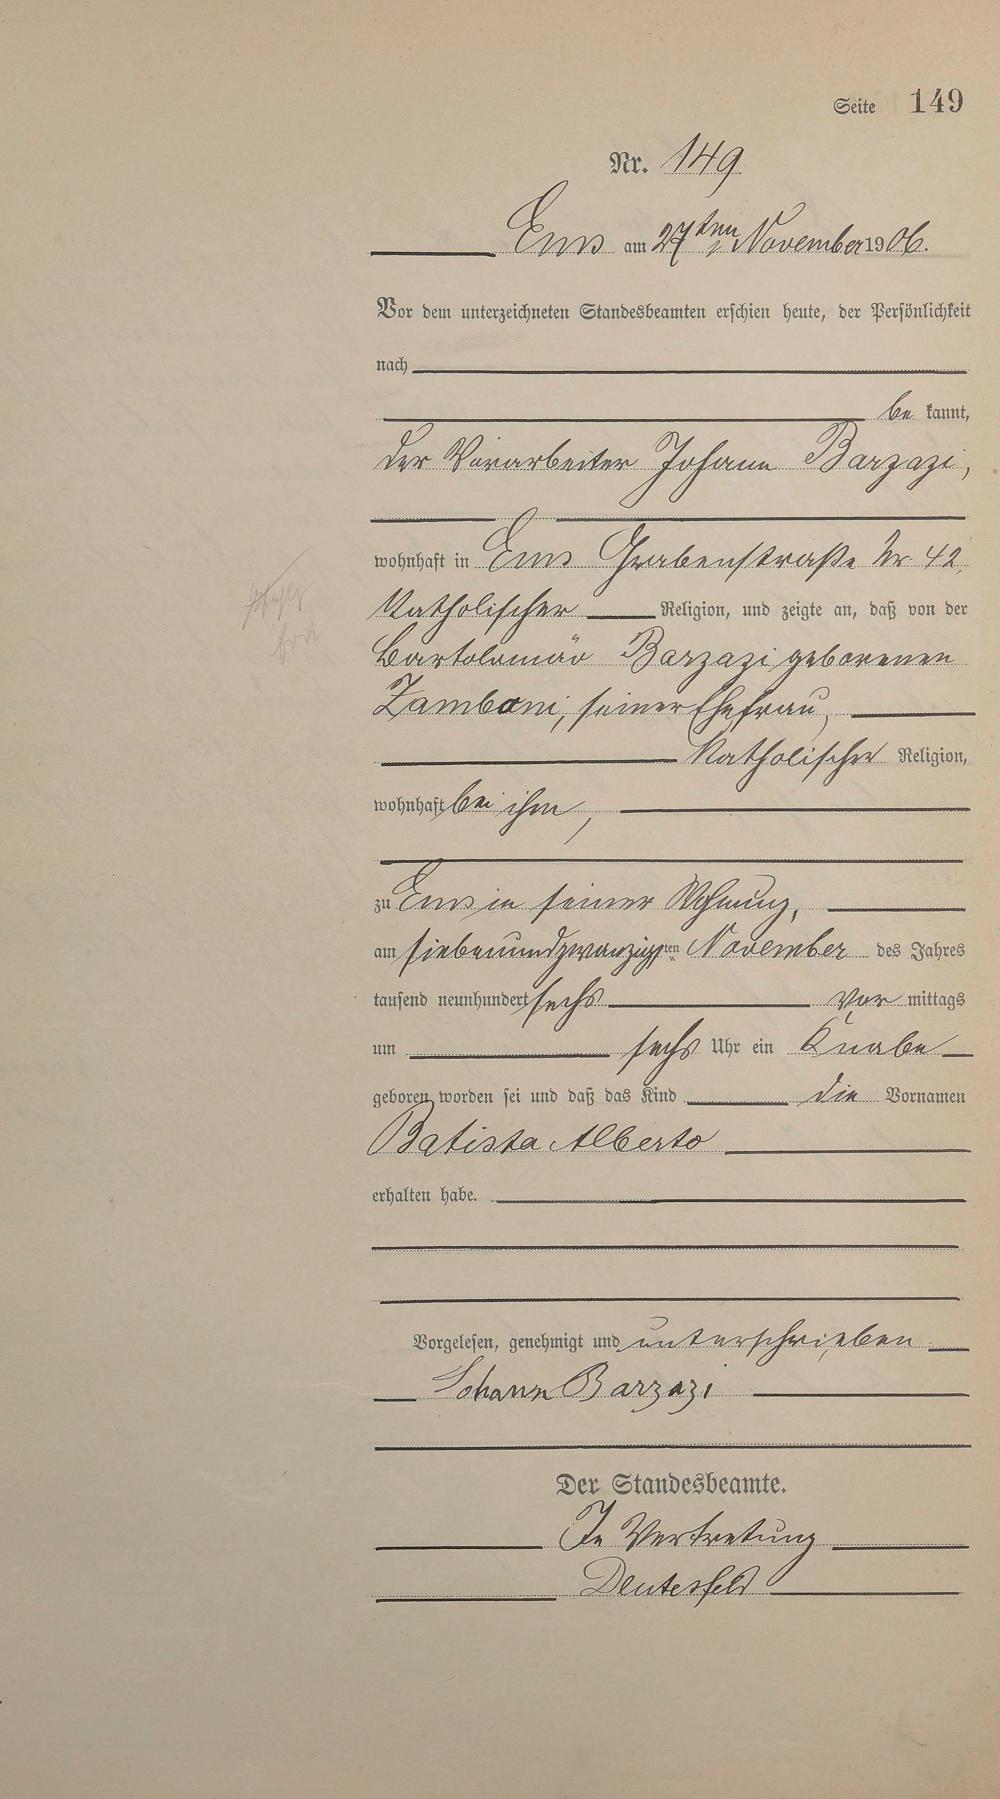 Seite 149
Nr. 149
Ems am 27ten November 1906.
Vor dem unterzeichneten Standesbeamten erschien heute, der Persönlichkeit
nach
be kannt,
der Vorarbeiter Johann Barzazi,
wohnhaft in Ems Grabenstraße Nr 42,
Katholischer Religion, und zeigte an, daß von der
Bartolomäo Barzazi geborenen
Zamboni, seiner Ehefrau,
Katholischer Religion,
wohnhaft bei ihm,
zu Ems in seiner Wohnung,
am siebenundzwanzigsten November des Jahres
tausend neunhundert sechs Vor mittags
um sechs Uhr ein Knabe
geboren worden sei und daß das Kind die Vornamen
Batista Alberto
erhalten habe.
Vorgelesen, genehmigt und unterschrieben
Johann Barzazi
Der Standesbeamte.
In Vertretung